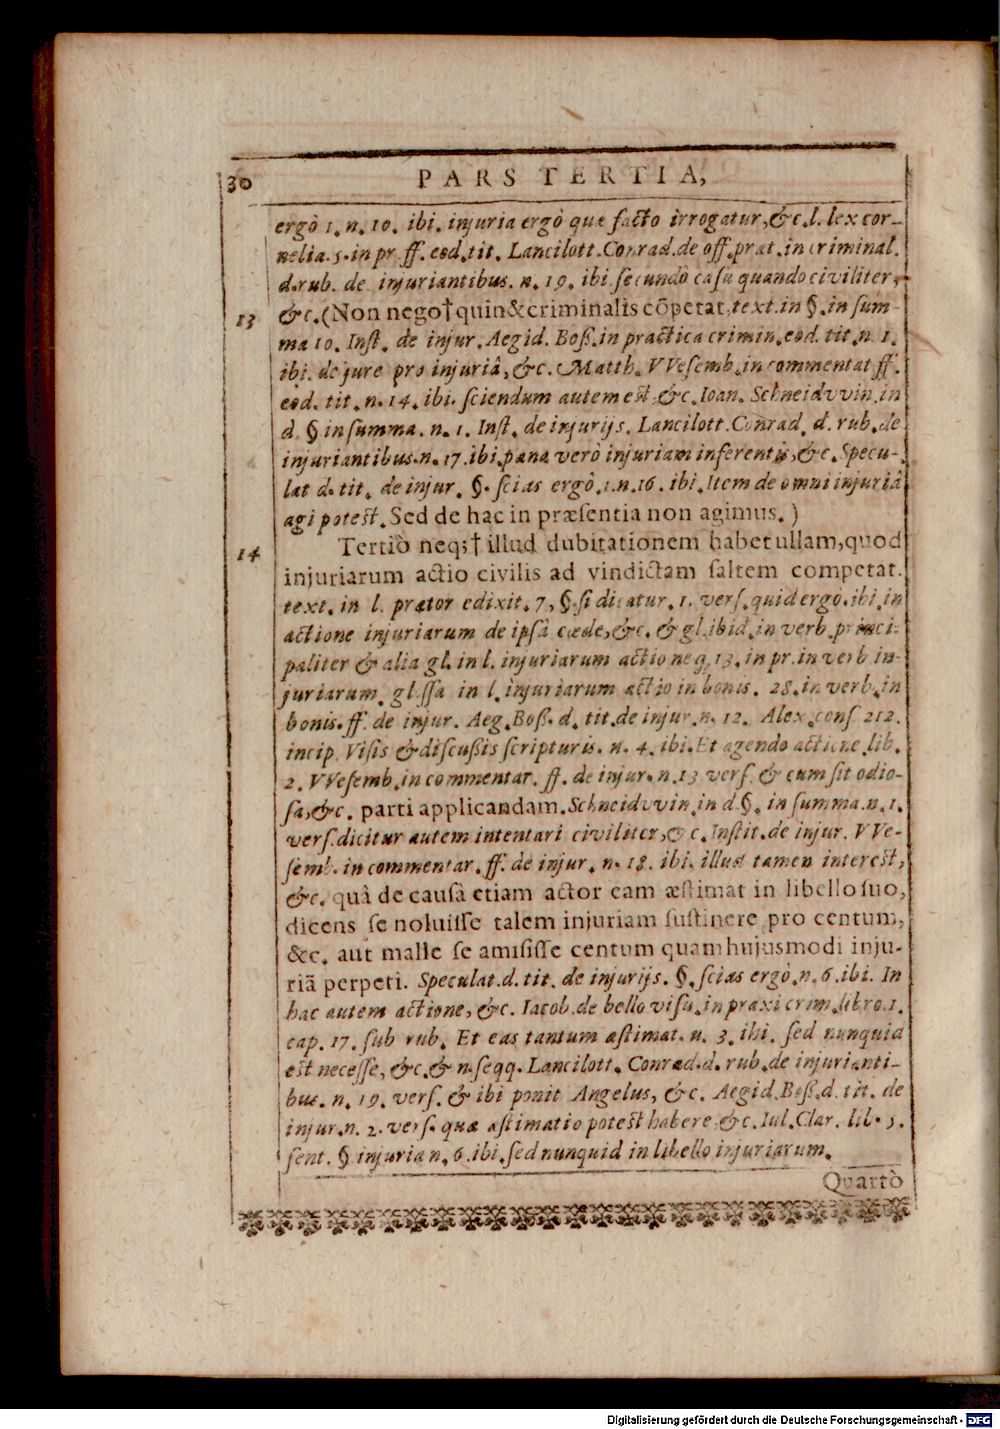 30
PARS TERTIA,
ergò 1. n. 10. ibi. injuria ergò quæ facto irrogatur, &c. l. lex cor-
nelia. 5. in pr. ff. eod. tit. Lancilott. Conrad. de off. præt. in criminal.
d. rub. de injuriantibus. n. 19. ibi secundò casu quando civiliter,
13
&c. (Non nego † quin & criminalis cõpetat, text. in §. in sum-
ma 10. Inst. de injur. Aegid. Boß. in practica crimin. eod. tit. n. 1.
ibi. de jure pro injuriâ, &c. Matth. VVesemb. in commentat ff.
eod. tit. n. 14. ibi. sciendum autem est, &c. Ioan. Schneidvvin. in
d. § in summa. n. 1. Inst. de injurijs. Lancilott. Conrad. d. rub. de
injuriantibus. n. 17. ibi. pœna verò injuriam inferentis, &c. Specu-
lat d. tit. de injur. §. scias ergò. 1. n. 16. ibi. Item de omni injuriâ
agi potest. Sed de hac in præsentia non agimus. )
14
Tertiò neq; † illud dubitationem habet ullam, quod
injuriarum actio civilis ad vindictam saltem competat.
text. in l. prætor edixit. 7, §. si dicatur. 1. vers. quid ergò. ibi, in
actione injuriarum de ipsâ cæde, &c. & gl. ibid. in verb. princi-
paliter & alia gl. in l. injuriarum actio neq. 13. in pr. in verb in-
juriarum. glossa in l. injuriarum actio in bonis. 28. in verb. in
bonis. ff. de injur. Aeg. Boß. d. tit. de injur. n. 12. Alex. cons 212.
incip. Visis & discußis scripturis. n. 4. ibi. Et agendo actione lib.
2. VVesemb. in commentar. ff. de injur. n. 13 vers. & cum sit odio-
sa, &c. parti applicandam. Schneidvvin. in d. §. in summa. n. 1.
vers. dicitur autem intentari civiliter, &c. Instit. de injur. VVe-
semb. in commentar. ff. de injur. n. 18. ibi. illud tamen interest,
&c. quâ de causâ etiam actor eam æstimat in libello suo,
dicens se noluisse talem injuriam sustinere pro centum,
&c. aut malle se amisisse centum quam hujusmodi inju-
riã perpeti. Speculat. d. tit. de injurijs. §. scias ergò. n. 6. ibi. In
hac autem actione, &c. Iacob. de bello visu. in praxi crim. libro. 1.
cap. 17. sub rub. Et eas tantum æstimat. n. 3. ibi. sed nunquid
est necesse, &c. & n. seqq. Lancilott. Conrad. d. rub. de injurianti-
bus. n. 19. vers. & ibi ponit Angelus, &c. Aegid. Boß. d. tit. de
injur. n. 2. vers. quæ æstimatio potest habere, &c. Iul. Clar. lib. 5.
sent. § injuria n. 6. ibi. sed nunquid in libello injuriarum.
Quartò
Digitalisierung gefördert durch die Deutsche Forschungsgemeinschaft - DFG